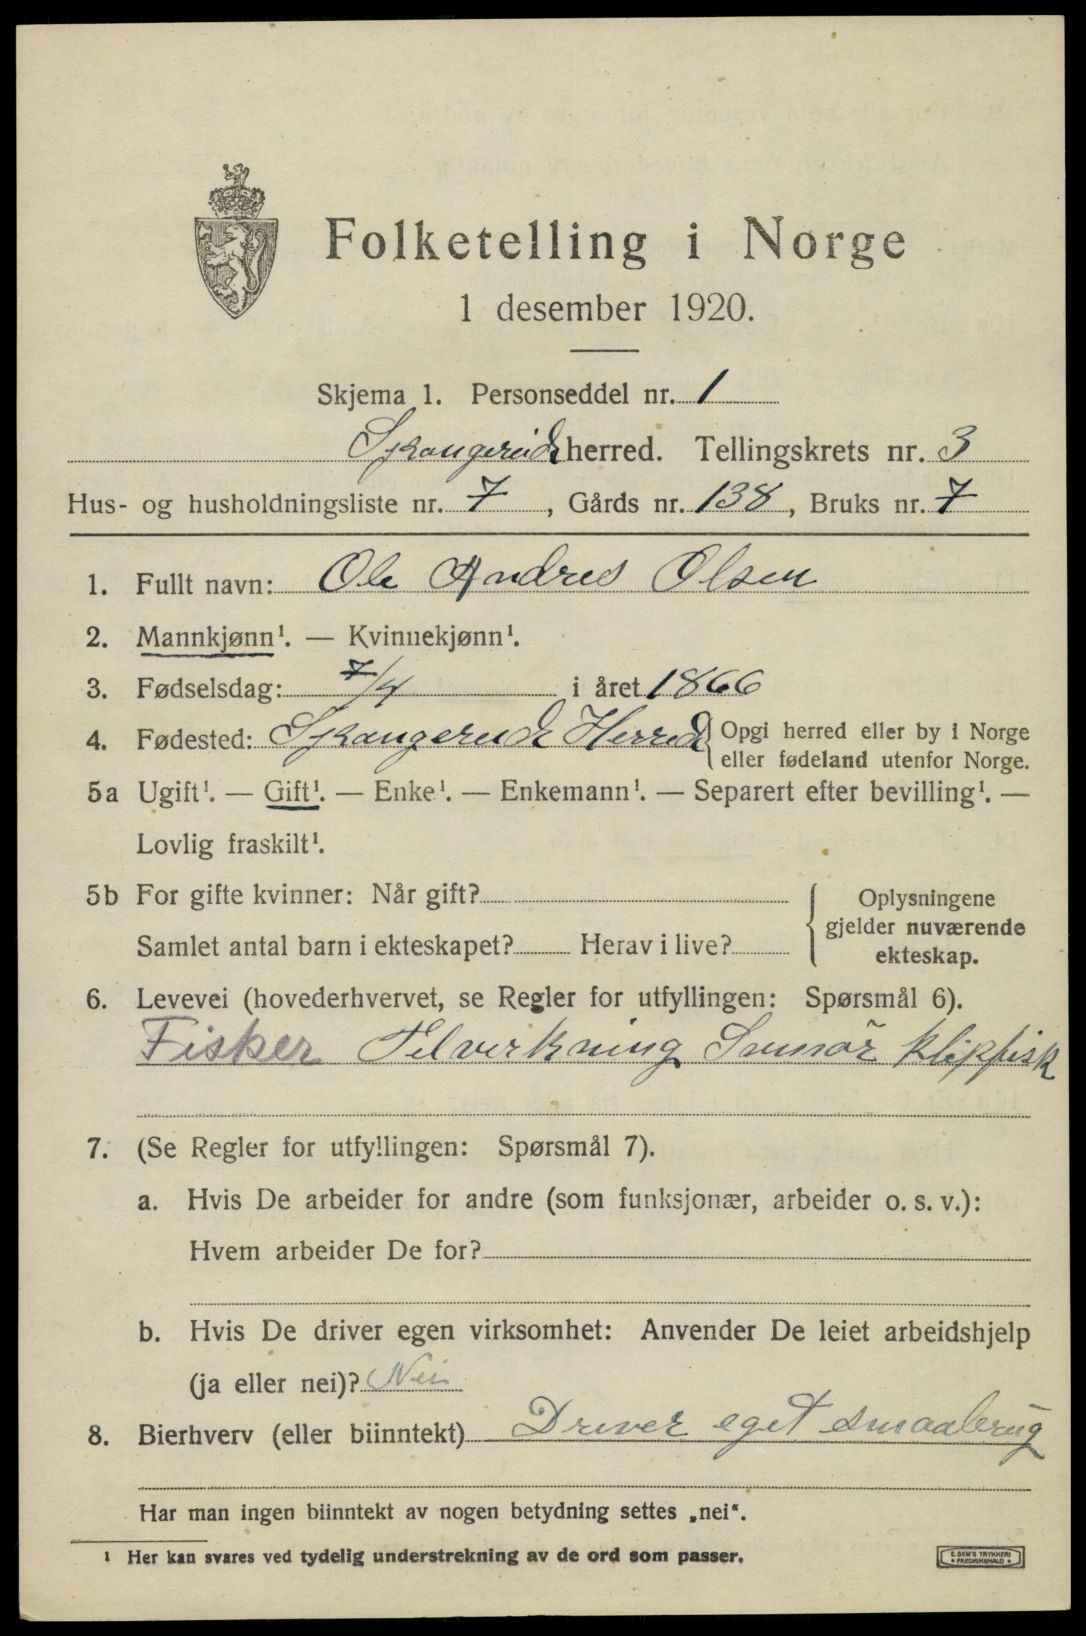 Folketelling i Norge
1 desember 1920.
Skjema 1. Personseddel nr. 1
herred. Tellingskrets nr. 3
Hus- og husholdningsliste nr. 7, Gårds nr. 138, Bruks nr. 7
1. Fullt navn: Ole Andres Olsen
2. Mannkjønn¹. — Kvinnekjønn¹.
3. Fødselsdag: 7/4 i året 1866
4. Fødested: Herred { Opgi herred eller by i Norge
eller fødeland utenfor Norge.
5a Ugift¹. — Gift¹. — Enke¹. — Enkemann¹. — Separert efter bevilling¹. —
Lovlig fraskilt¹.
5b For gifte kvinner: Når gift?
Samlet antal barn i ekteskapet? Herav i live?
{ Oplysningene
gjelder nuværende
ekteskap.
6. Levevei (hovederhvervet, se Regler for utfyllingen: Spørsmål 6).
Fisker Telverkning klipfisk
7. (Se Regler for utfyllingen: Spørsmål 7).
a. Hvis De arbeider for andre (som funksjonær, arbeider o. s. v.):
Hvem arbeider De for?
b. Hvis De driver egen virksomhet: Anvender De leiet arbeidshjelp
(ja eller nei)? Nei
8. Bierhverv (eller biinntekt) Driver eget smaabrug
Har man ingen biinntekt av nogen betydning settes „nei“.
¹ Her kan svares ved tydelig understrekning av de ord som passer.
E. SEM'S TRYKKERI
• FREDRIKSHALD •